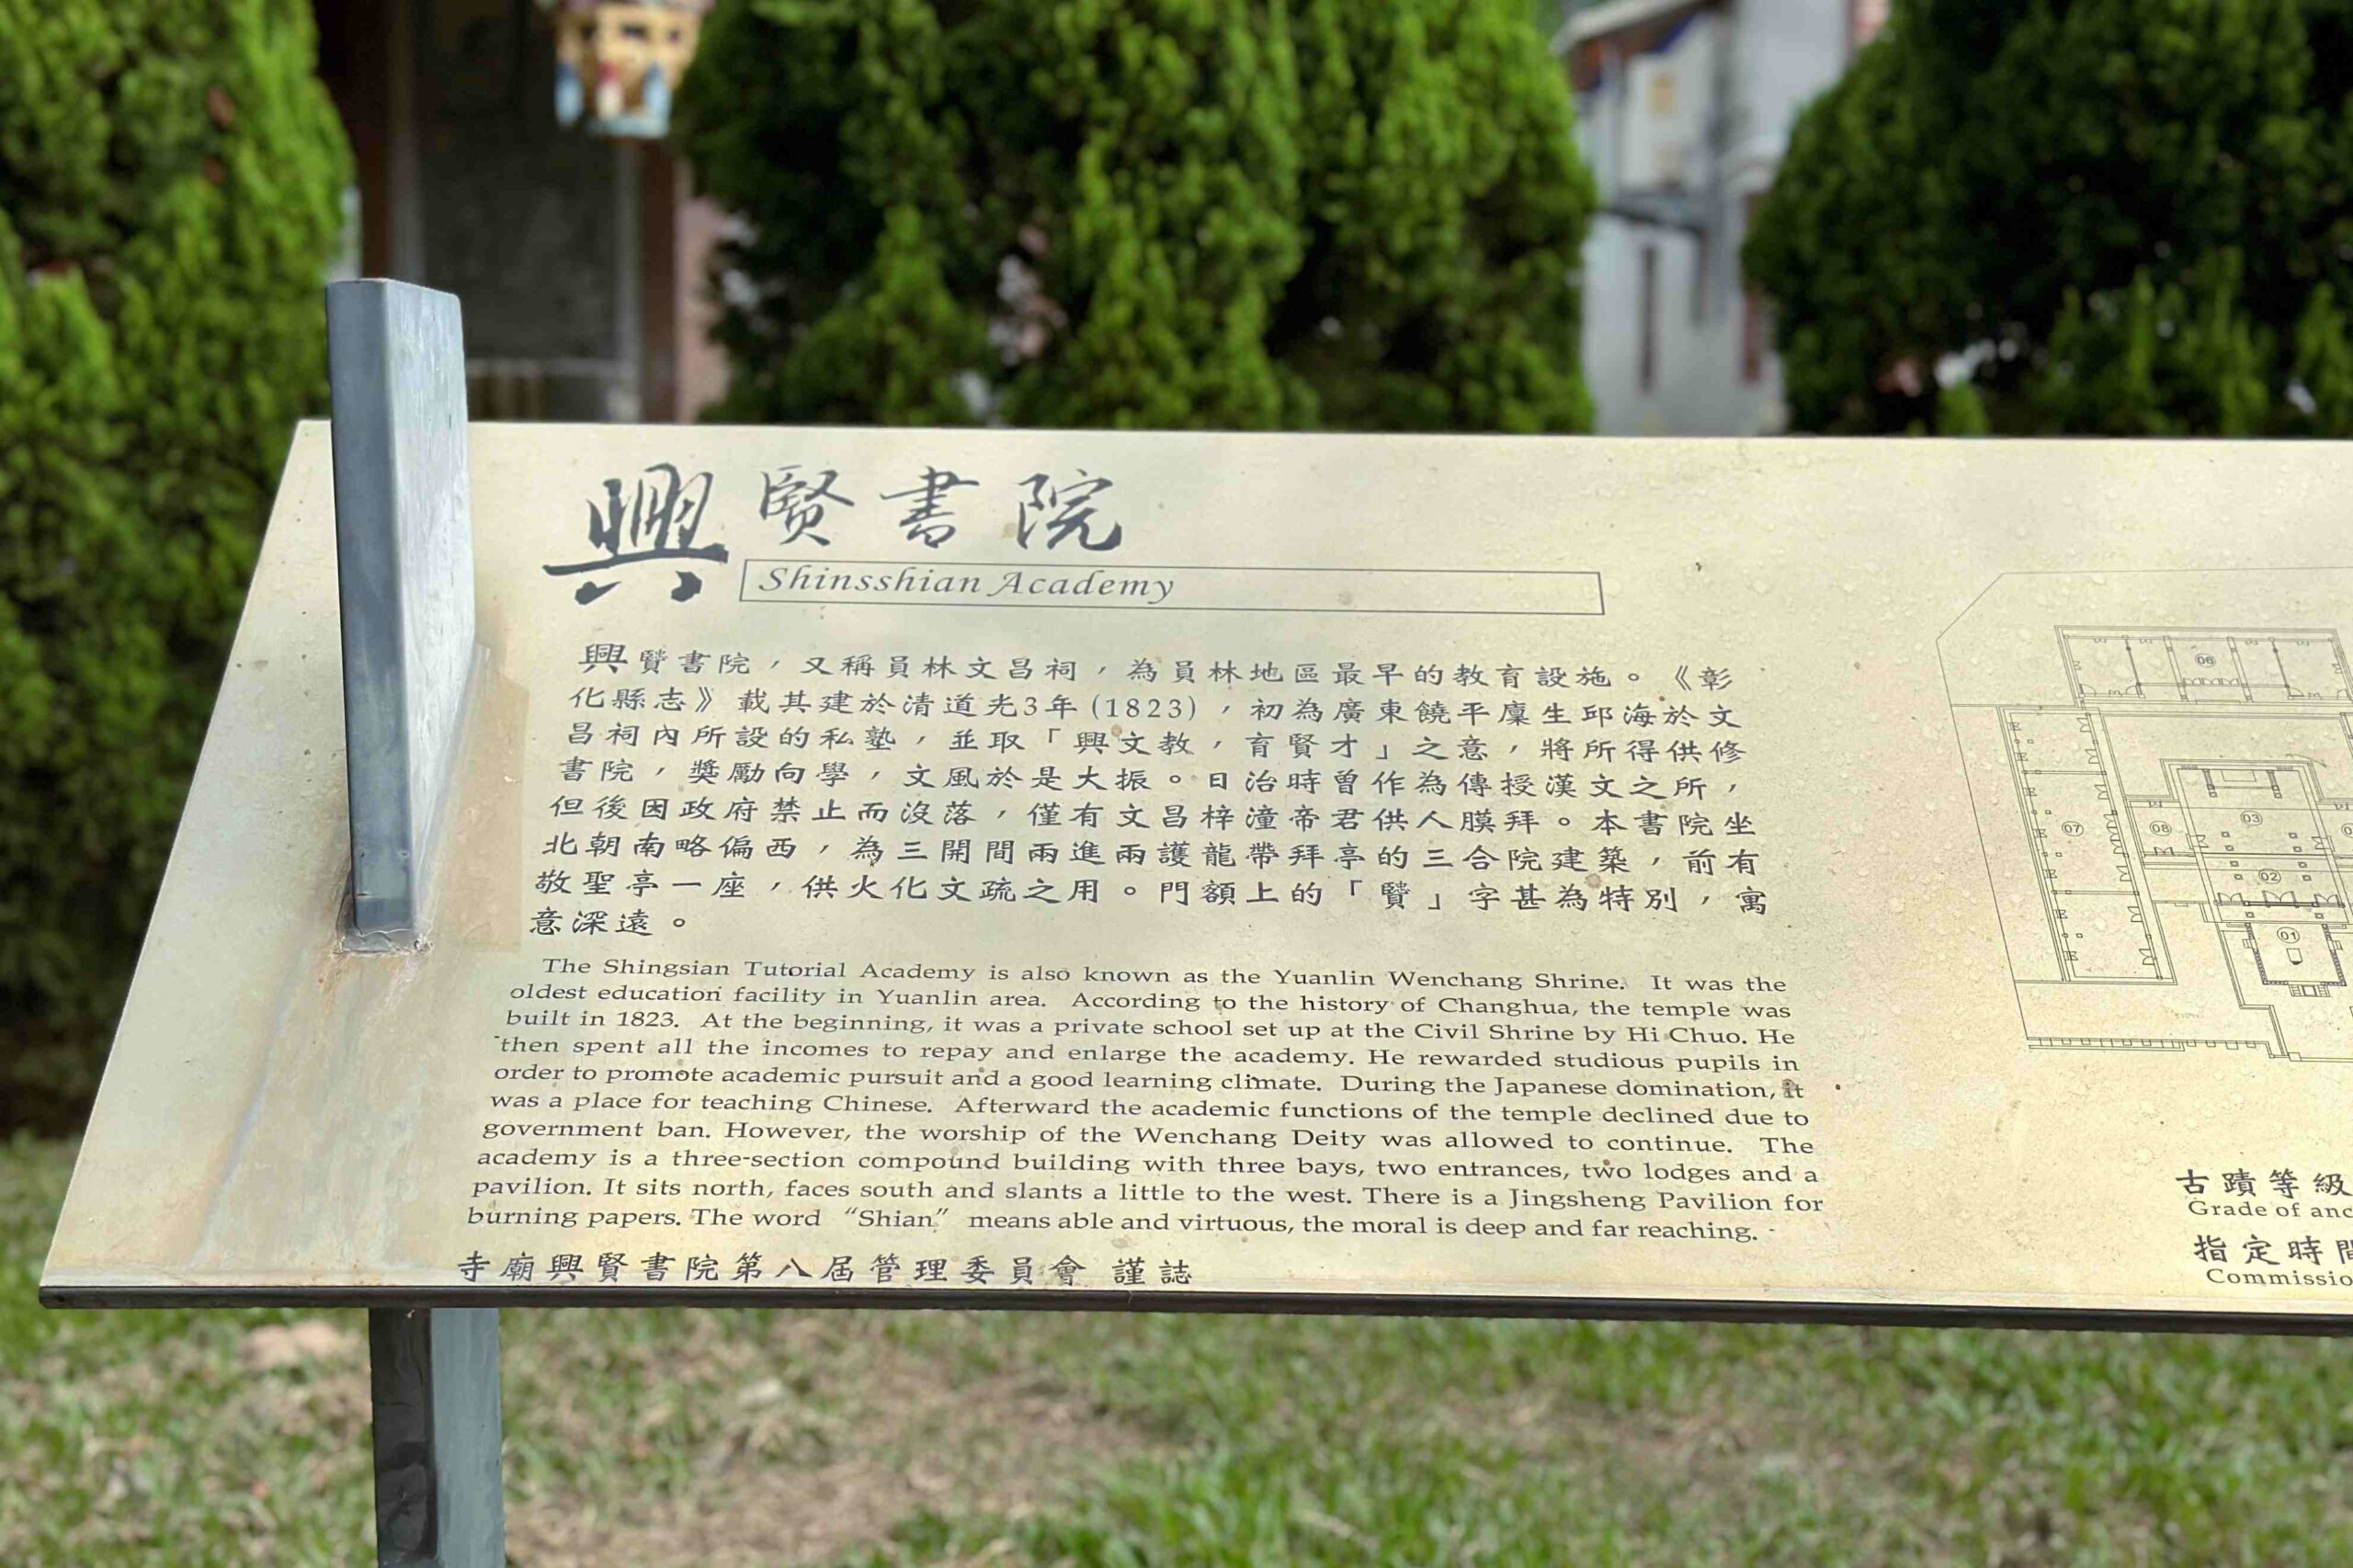 興賢書院
Shinsshian Academy
興賢書院，又稱員林文昌祠，為員林地區最早的教育設施。《彰
化縣志》載其建於清道光3年(1823)，初為廣東饒平廩生邱海於文
昌祠內所設的私塾，並取「興文教，育賢才」之意，將所得供修
書院，獎勵向學，文風於是大振。日治時曾作為傳授漢文之所，
但後因政府禁止而沒落，僅有文昌梓潼帝君供人膜拜。本書院坐
北朝南略偏西，為三開間兩進兩護龍帶拜亭的三合院建築，前有
敬聖亭一座，供火化文疏之用。門額上的「贒」字甚為特別，寓
意深遠。
The Shingsian Tutorial Academy is also known as the Yuanlin Wenchang Shrine. It was the
oldest education facility in Yuanlin area. According to the history of Changhua, the temple was
built in 1823. At the beginning, it was a private school set up at the Civil Shrine by Hi Chuo. He
then spent all the incomes to repay and enlarge the academy. He rewarded studious pupils in
order to promote academic pursuit and a good learning climate. During the Japanese domination, it
was a place for teaching Chinese. Afterward the academic functions of the temple declined due to
government ban. However, the worship of the Wenchang Deity was allowed to continue. The
academy is a three-section compound building with three bays, two entrances, two lodges and a
pavilion. It sits north, faces south and slants a little to the west. There is a Jingsheng Pavilion for
burning papers. The word "Shian" means able and virtuous, the moral is deep and far reaching.
寺廟興賢書院第八屆管理委員會 謹誌
06
07
08
03
02
01
古蹟等級
Grade of anc
指定時間
Commissio